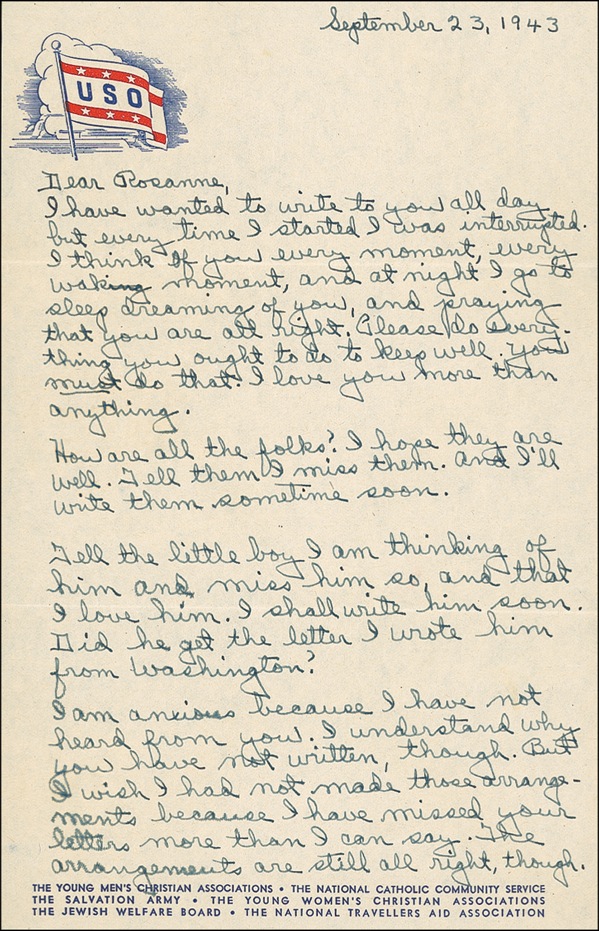 September 23, 1943
USO
Dear Rosanne,
I have wanted to write to you all day
but every time I started I was interrupted.
I think of you every moment, every
waking moment, and at night I go to
sleep dreaming of you, and praying
that you are all right. Please do every-
thing you ought to do to keep well. You
must do that. I love you more than
anything.
How are all the folks? I hope they are
well. Tell them I miss them. And I'll
write them sometime soon.
Tell the little boy I am thinking of
him and miss him so, and that
I love him. I shall write him soon.
Did he get the letter I wrote him
from Washington?
I am anxious because I have not
heard from you. I understand why
you have not written, though. But
I wish I had not made those arrange-
ments because I have missed your
letters more than I can say. The
arrangements are still all right, though.
THE YOUNG MEN'S CHRISTIAN ASSOCIATIONS • THE NATIONAL CATHOLIC COMMUNITY SERVICE
THE SALVATION ARMY • THE YOUNG WOMEN'S CHRISTIAN ASSOCIATIONS
THE JEWISH WELFARE BOARD • THE NATIONAL TRAVELLERS AID ASSOCIATION